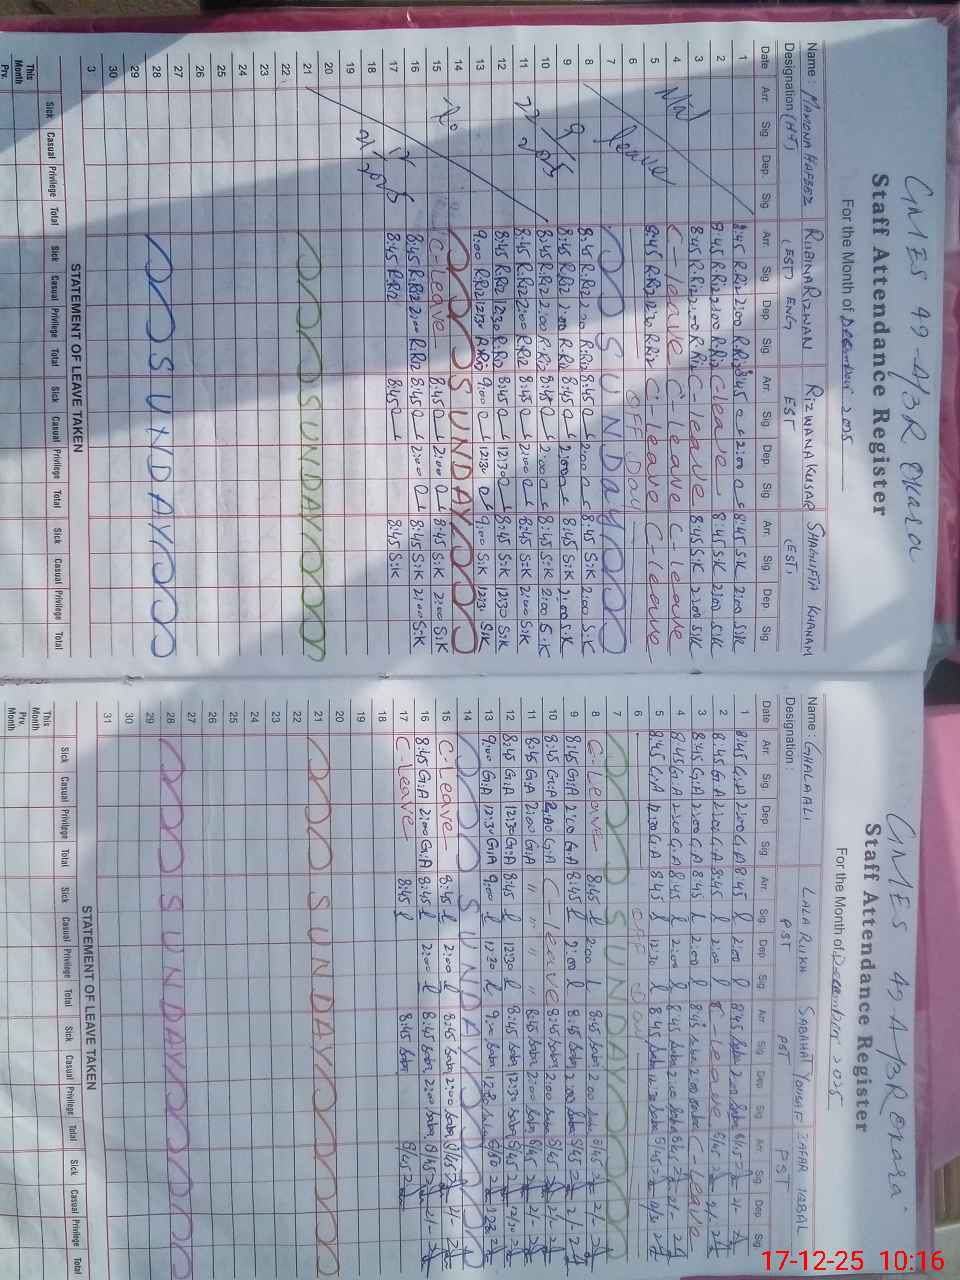 GMES 49-A/3R Okara
Staff Attendance Register
For the Month of December 2025
Name: MAMONA HAFEEZ RUBINA RIZWAN RIZWANA KUSAR SHAGUFTA KHANAM
Designation (HT) (EST) ENG EST (EST)
Date Arr. Sig Dep. Sig Arr Sig Dep Sig Arr Sig Dep Sig Arr Sig Dep. Sig
1 8:45 R.Riz 2:00 R.Riz 8:45 2:00 8:45 S.K 2:00 S.K
2 8:45 R.Riz 2:00 R.Riz C-leave 8:45 S.K 2:00 S.K
3 8:45 R.Riz 2:00 R.Riz C-leave 8:45 S.K 2:00 S.K
4 C-leave C-leave C-leave
5 8:45 R.Riz 12:30 R.Riz C-leave C-leave
6 OFF Day
7 SUNDAY
8 leave 8:45 R.Riz 2:00 R.Riz 8:45 2:00 8:45 S.K 2:00 S.K
9 8:45 R.Riz 2:00 R.Riz 8:45 2:00 8:45 S.K 2:00 S.K
10 8:45 R.Riz 2:00 R.Riz 8:45 2:00 8:45 S.K 2:00 S.K
11 8:45 R.Riz 2:00 R.Riz 8:45 2:00 8:45 S.K 2:00 S.K
12 8:45 R.Riz 12:30 R.Riz 8:45 12:30 8:45 S.K 12:30 S.K
13 9:00 R.Riz 12:30 R.Riz 9:00 12:30 9:00 S.K 12:30 S.K
14 SUNDAY
15 C-Leave 8:45 2:00 8:45 S.K 2:00 S.K
16 8:45 R.Riz 2:00 R.Riz 8:45 2:00 8:45 S.K 2:00 S.K
17 8:45 R.Riz 8:45 8:45 S.K
18
19
20
21 SUNDAY
22
23
24
25
26
27
28 SUNDAY
29
30
3
STATEMENT OF LEAVE TAKEN
Sick Casual Privilege Total Sick Casual Privilege Total Sick Casual Privilege Total Sick Casual Privilege Total
This Month
Prv.
GMES 49-A/3R Okara.
Staff Attendance Register
For the Month of December 2025
Name: GHALA ALI LALA RUKH SABAHAT YOUSAF ZAFAR IQBAL
Designation: PST PST PST
Date Arr. Sig Dep. Sig Arr. Sig Dep Sig Arr Sig Dep Sig Arr Sig Dep Sig
1 8:45 G.A 2:00 G.A 8:45 2:00 8:45 Saba 2:00 Saba 8/45 2/-
2 8:45 G.A 2:00 G.A 8:45 2:00 C-Leave 8/45 2/-
3 8:45 G.A 2:00 G.A 8:45 2:00 8:45 Saba 2:00 Saba C-Leave
4 8:45 G.A 2:00 G.A 8:45 2:00 8:45 Saba 2:00 Saba 8/45 2/-
5 8:45 G.A 12:30 G.A 8:45 12:30 8:45 Saba 12:30 Saba 8/45
6 OFF Day
7 SUNDAY
8 C-Leave 8:45 2:00 8:45 Saba 2:00 Saba 8/45 2/-
9 8:45 G.A 2:00 G.A 8:45 2:00 8:45 Saba 2:00 Saba 8/45 2/-
10 8:45 G.A 2:00 G.A C-leave 8:45 Saba 2:00 Saba 8/45 2/-
11 8:45 G.A 2:00 G.A " " " " 8:45 Saba 2:00 Saba 8/45 2/-
12 8:45 G.A 12:30 G.A 8:45 12:30 8:45 Saba 12:30 Saba 8/45 12/30
13 9:00 G.A 12:30 G.A 9:00 12:30 9:00 Saba 12:30 Saba
14 SUNDAY
15 C-Leave 8:45 2:00 8:45 Saba 2:00 Saba 8/45 2/-
16 8:45 G.A 2:00 G.A 8:45 2:00 8:45 Saba 2:00 Saba 8/45 2/-
17 C-Leave 8:45 8:45 Saba 8/45
18
19
20
21 SUNDAY
22
23
24
25
26
27
28 SUNDAY
29
30
31
STATEMENT OF LEAVE TAKEN
Sick Casual Privilege Total Sick Casual Privilege Total Sick Casual Privilege Total Sick Casual Privilege Total
This Month
Prv. Month
17-12-25 10:16